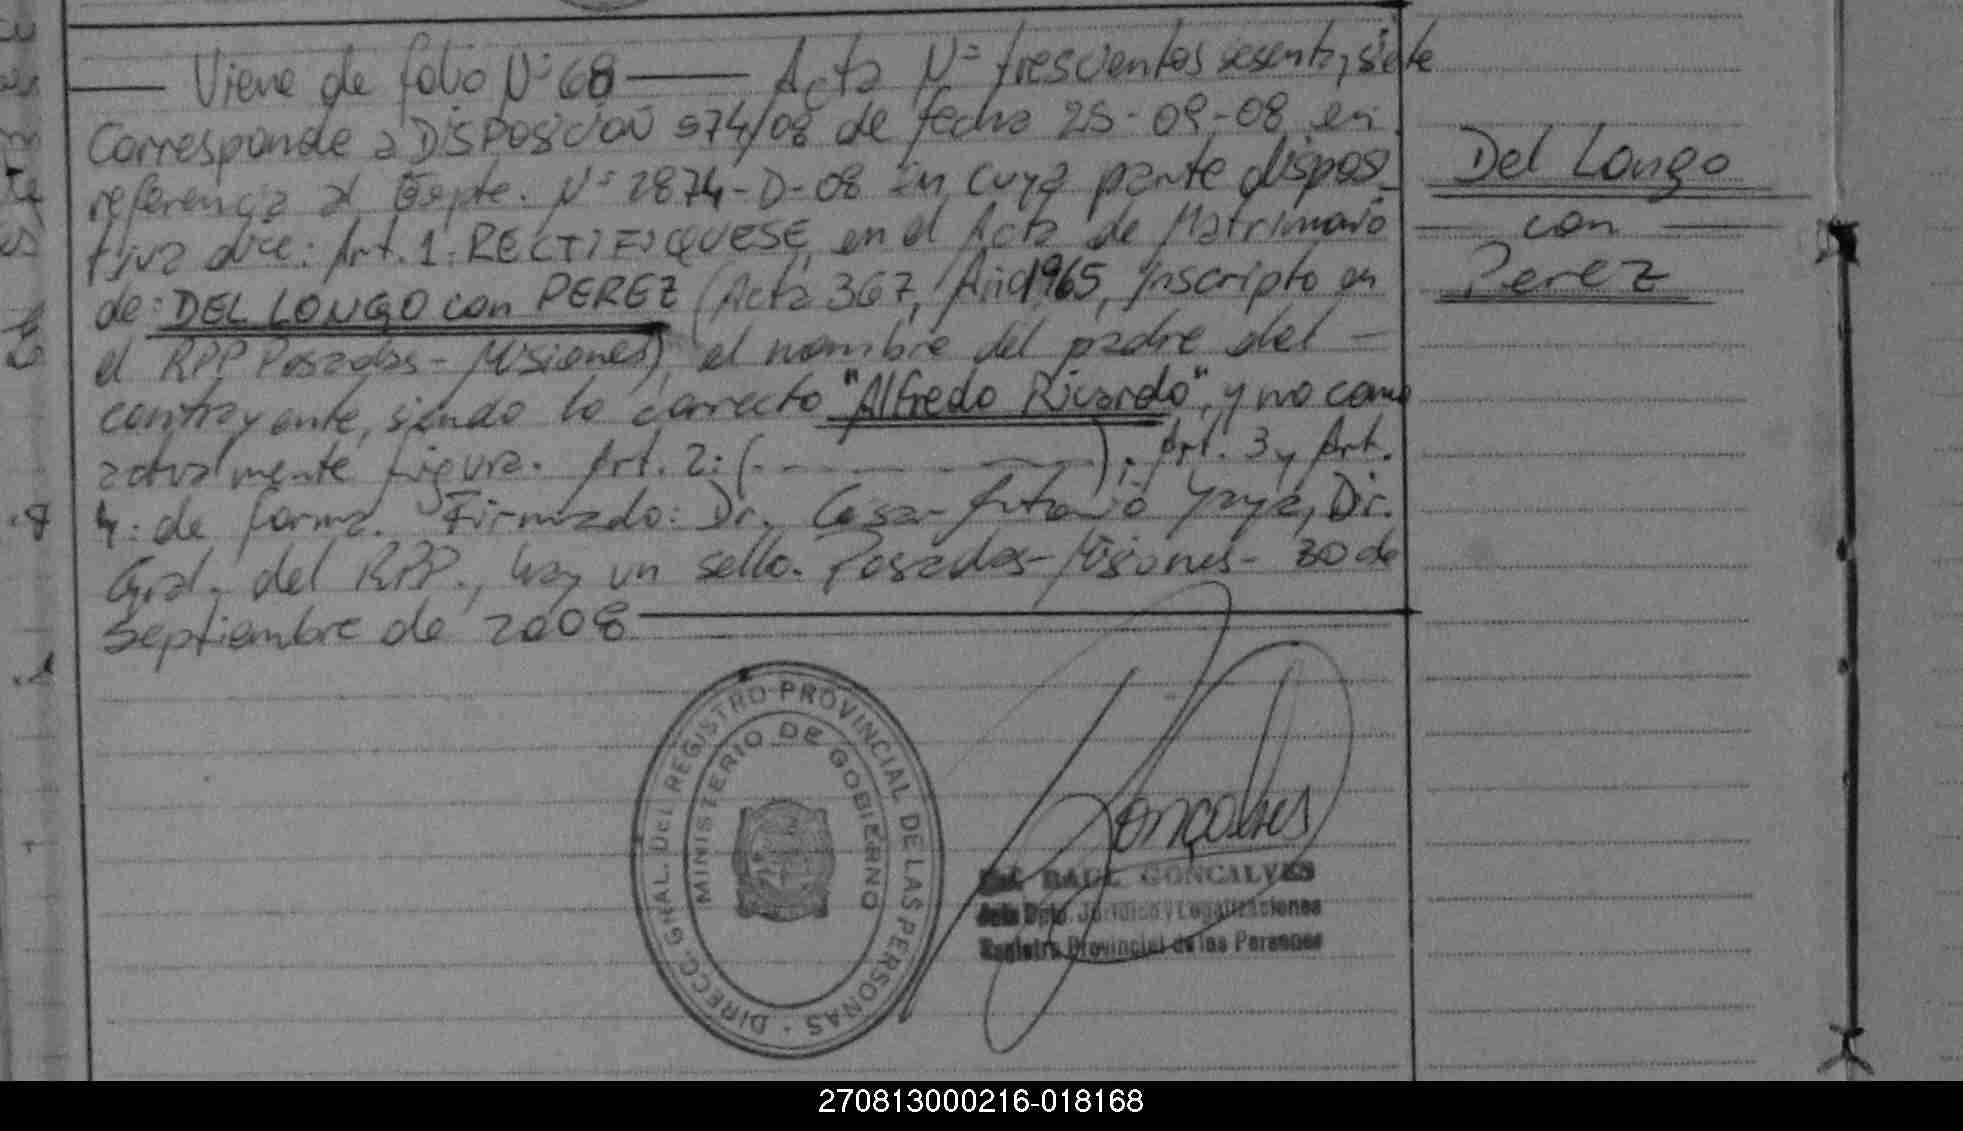 Viene de folio Nº 68 — Acta Nº trescientos sesenta y siete
Corresponde a DISPOSICION 974/08 de fecha 25-09-08 en
referencia al Expte. Nº 2874-D-08 en cuya parte disposi-
tiva dice: Art. 1: RECTIFIQUESE, en el Acta de Matrimonio
de: DEL LONGO con PEREZ (Acta 367, Año 1965, Inscripto en
el RPP Posadas - Misiones), el nombre del padre del -
contrayente, siendo lo correcto "Alfredo Ricardo", y no como
actualmente figura. Art. 2: (. - - - - - ). Art. 3 y Art.
4: de forma. Firmado: Dr. Cesar Antonio Yaya, Dir.
Gral. del RPP., hay un sello. Posadas - Misiones - 30 de
Septiembre de 2008
Del Longo
con
Perez
DIRECC. GRAL. DEL REGISTRO PROVINCIAL DE LAS PERSONAS
MINISTERIO DE GOBIERNO
Goncalves
RAUL GONCALVES
Dpto. Jurídico y Legalizaciones
Registro Provincial de las Personas
270813000216-018168